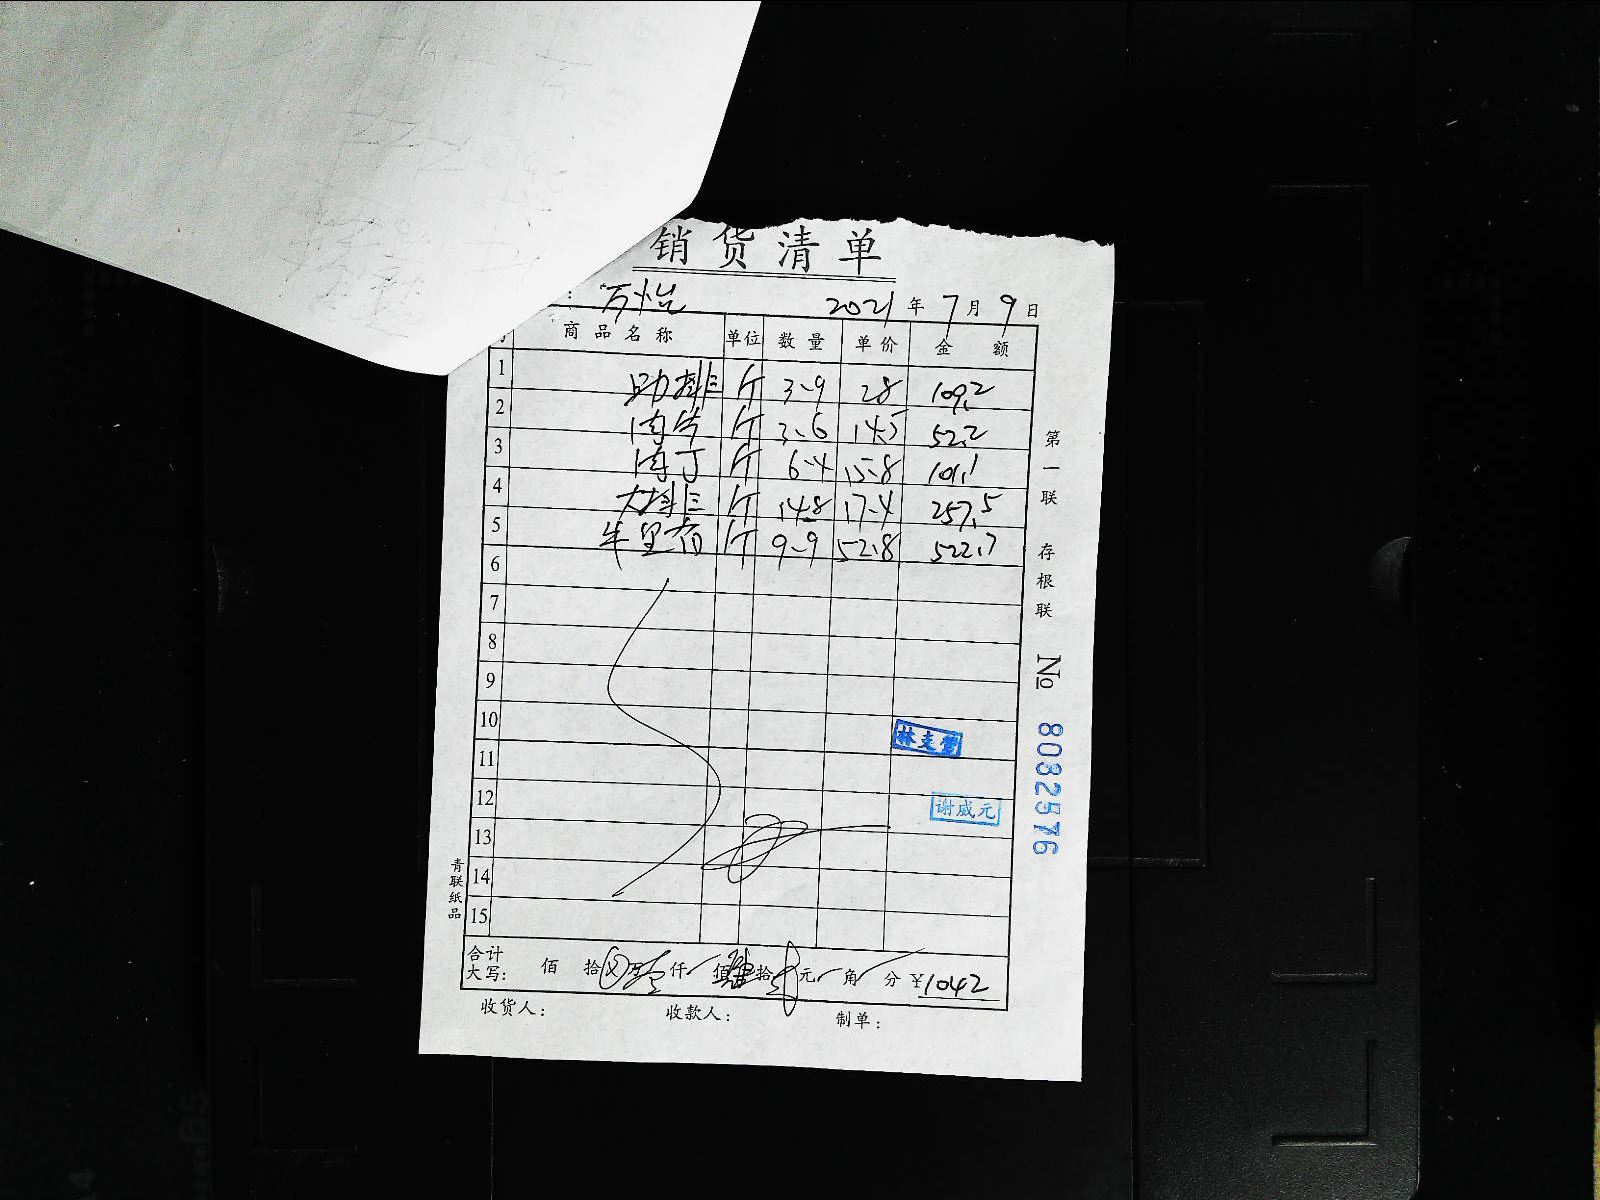 销货清单
: 万怡 2021年7月9日
商品名称 单位 数量 单价 金额
1 助排 斤 3.9 28 109.2
2 肉片 斤 3.6 14.5 52.2
3 肉丁 斤 6.4 15.8 101.1
4 大排 斤 14.8 17.4 257.5
5 牛里脊 斤 9.9 52.8 522.7
6
7
8
9
10
11
12
13
14
15
谢威元
合计
大写: 佰 拾 万 仟 佰 拾 元 角 分 ¥1042
收货人: 收款人: 制单:
第一联 存根联 No 8032576
青联纸品